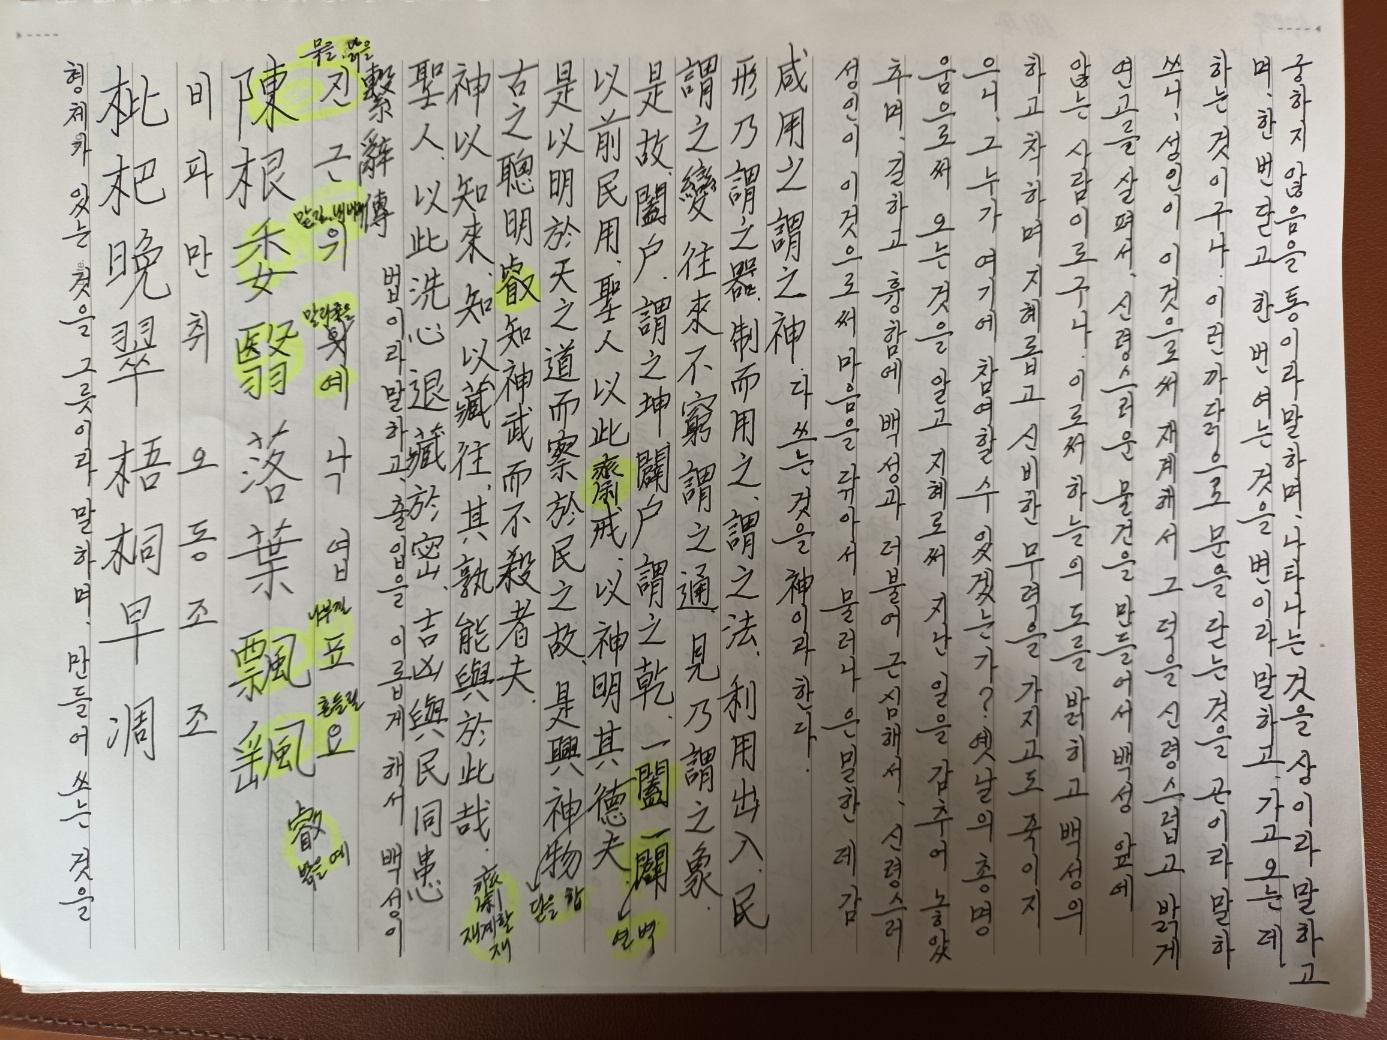 형체가 있는 것을 그릇이라 말하며, 만들어 쓰는 것을
枇杷晩翠 梧桐早凋
비파만취 오동조조
陳根委翳落葉飄颻
진근위예낙엽표요
묵을 맑을
말라죽을
나부낄
흔들릴
叡
밝을 예
繫辭傳 법이라 말하고, 출입을 이롭게 해서 백성이
聖人, 以此洗心退藏於密, 吉凶與民同患
神以知來, 知以藏往, 其孰能與於此哉.
齋
재계할
재
古之聰明叡知神武而不殺者夫.
是以明於天之道而察於民之故, 是興神物
닫을 합
以前民用, 聖人以此齋戒, 以神明其德夫.
是故, 闔户, 謂之坤 闢户 謂之乾. 一闔一闢
열 벽
謂之變 往來不窮 謂之通, 見乃謂之象.
形乃謂之器, 制而用之, 謂之法, 利用出入, 民
咸用之 謂之神. 다 쓰는 것을 神이라 한다.
성인이 이것으로써 마음을 닦아서 물러나 은밀한 데 감
추며, 길하고 흉함에 백성과 더불어 근심해서, 신령스러
움으로써 오는것을 알고 지혜로써 지난 일을 감추어 놓았
으니, 그 누가 여기에 참여할 수 있겠는가? 옛날의 총명
하고 착하며 지혜롭고 신비한 무력을 가지고도 죽이지
않는 사람이로구나. 이로써 하늘의 도를 밝히고 백성의
연고를 살펴서, 신령스러운 물건을 만들어서 백성 앞에
쓰니, 성인이 이것으로써 재계해서 그 덕을 신령스럽고 밝게
하는 것이구나. 이런 까닭으로 문을 닫는 것을 곤이라 말하
며, 한 번 닫고 한 번 여는 것을 변이라 말하고, 가고 오는데,
궁하지 않음을 통이라 말하며, 나타나는 것을 상이라 말하고